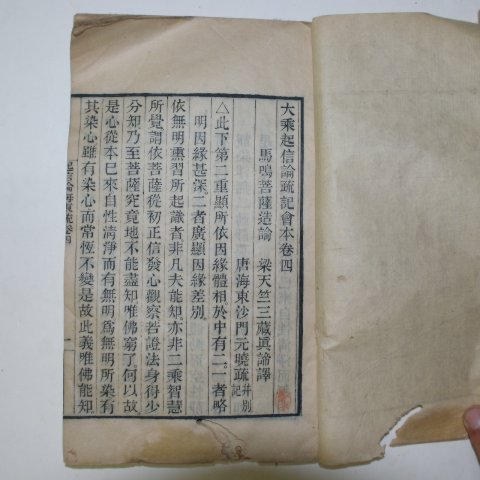 大乘起信論疏記會本卷四
馬鳴菩薩造論　梁天竺三藏眞諦譯
唐海東沙門元曉疏幷別記
△此下第二重顯所依因緣體相於中有二。一者略
明因緣甚深。二者廣顯因緣差別
依無明熏習所起識者非凡夫能知亦非二乘智慧
所覺謂依菩薩從初正信發心觀察若證法身得少
分知乃至菩薩究竟地不能盡知唯佛窮了何以故
是心從本已來自性淸淨而有無明爲無明所染有
其染心雖有染心而常恆不變是故此義唯佛能知
起信論海東疏卷四
一